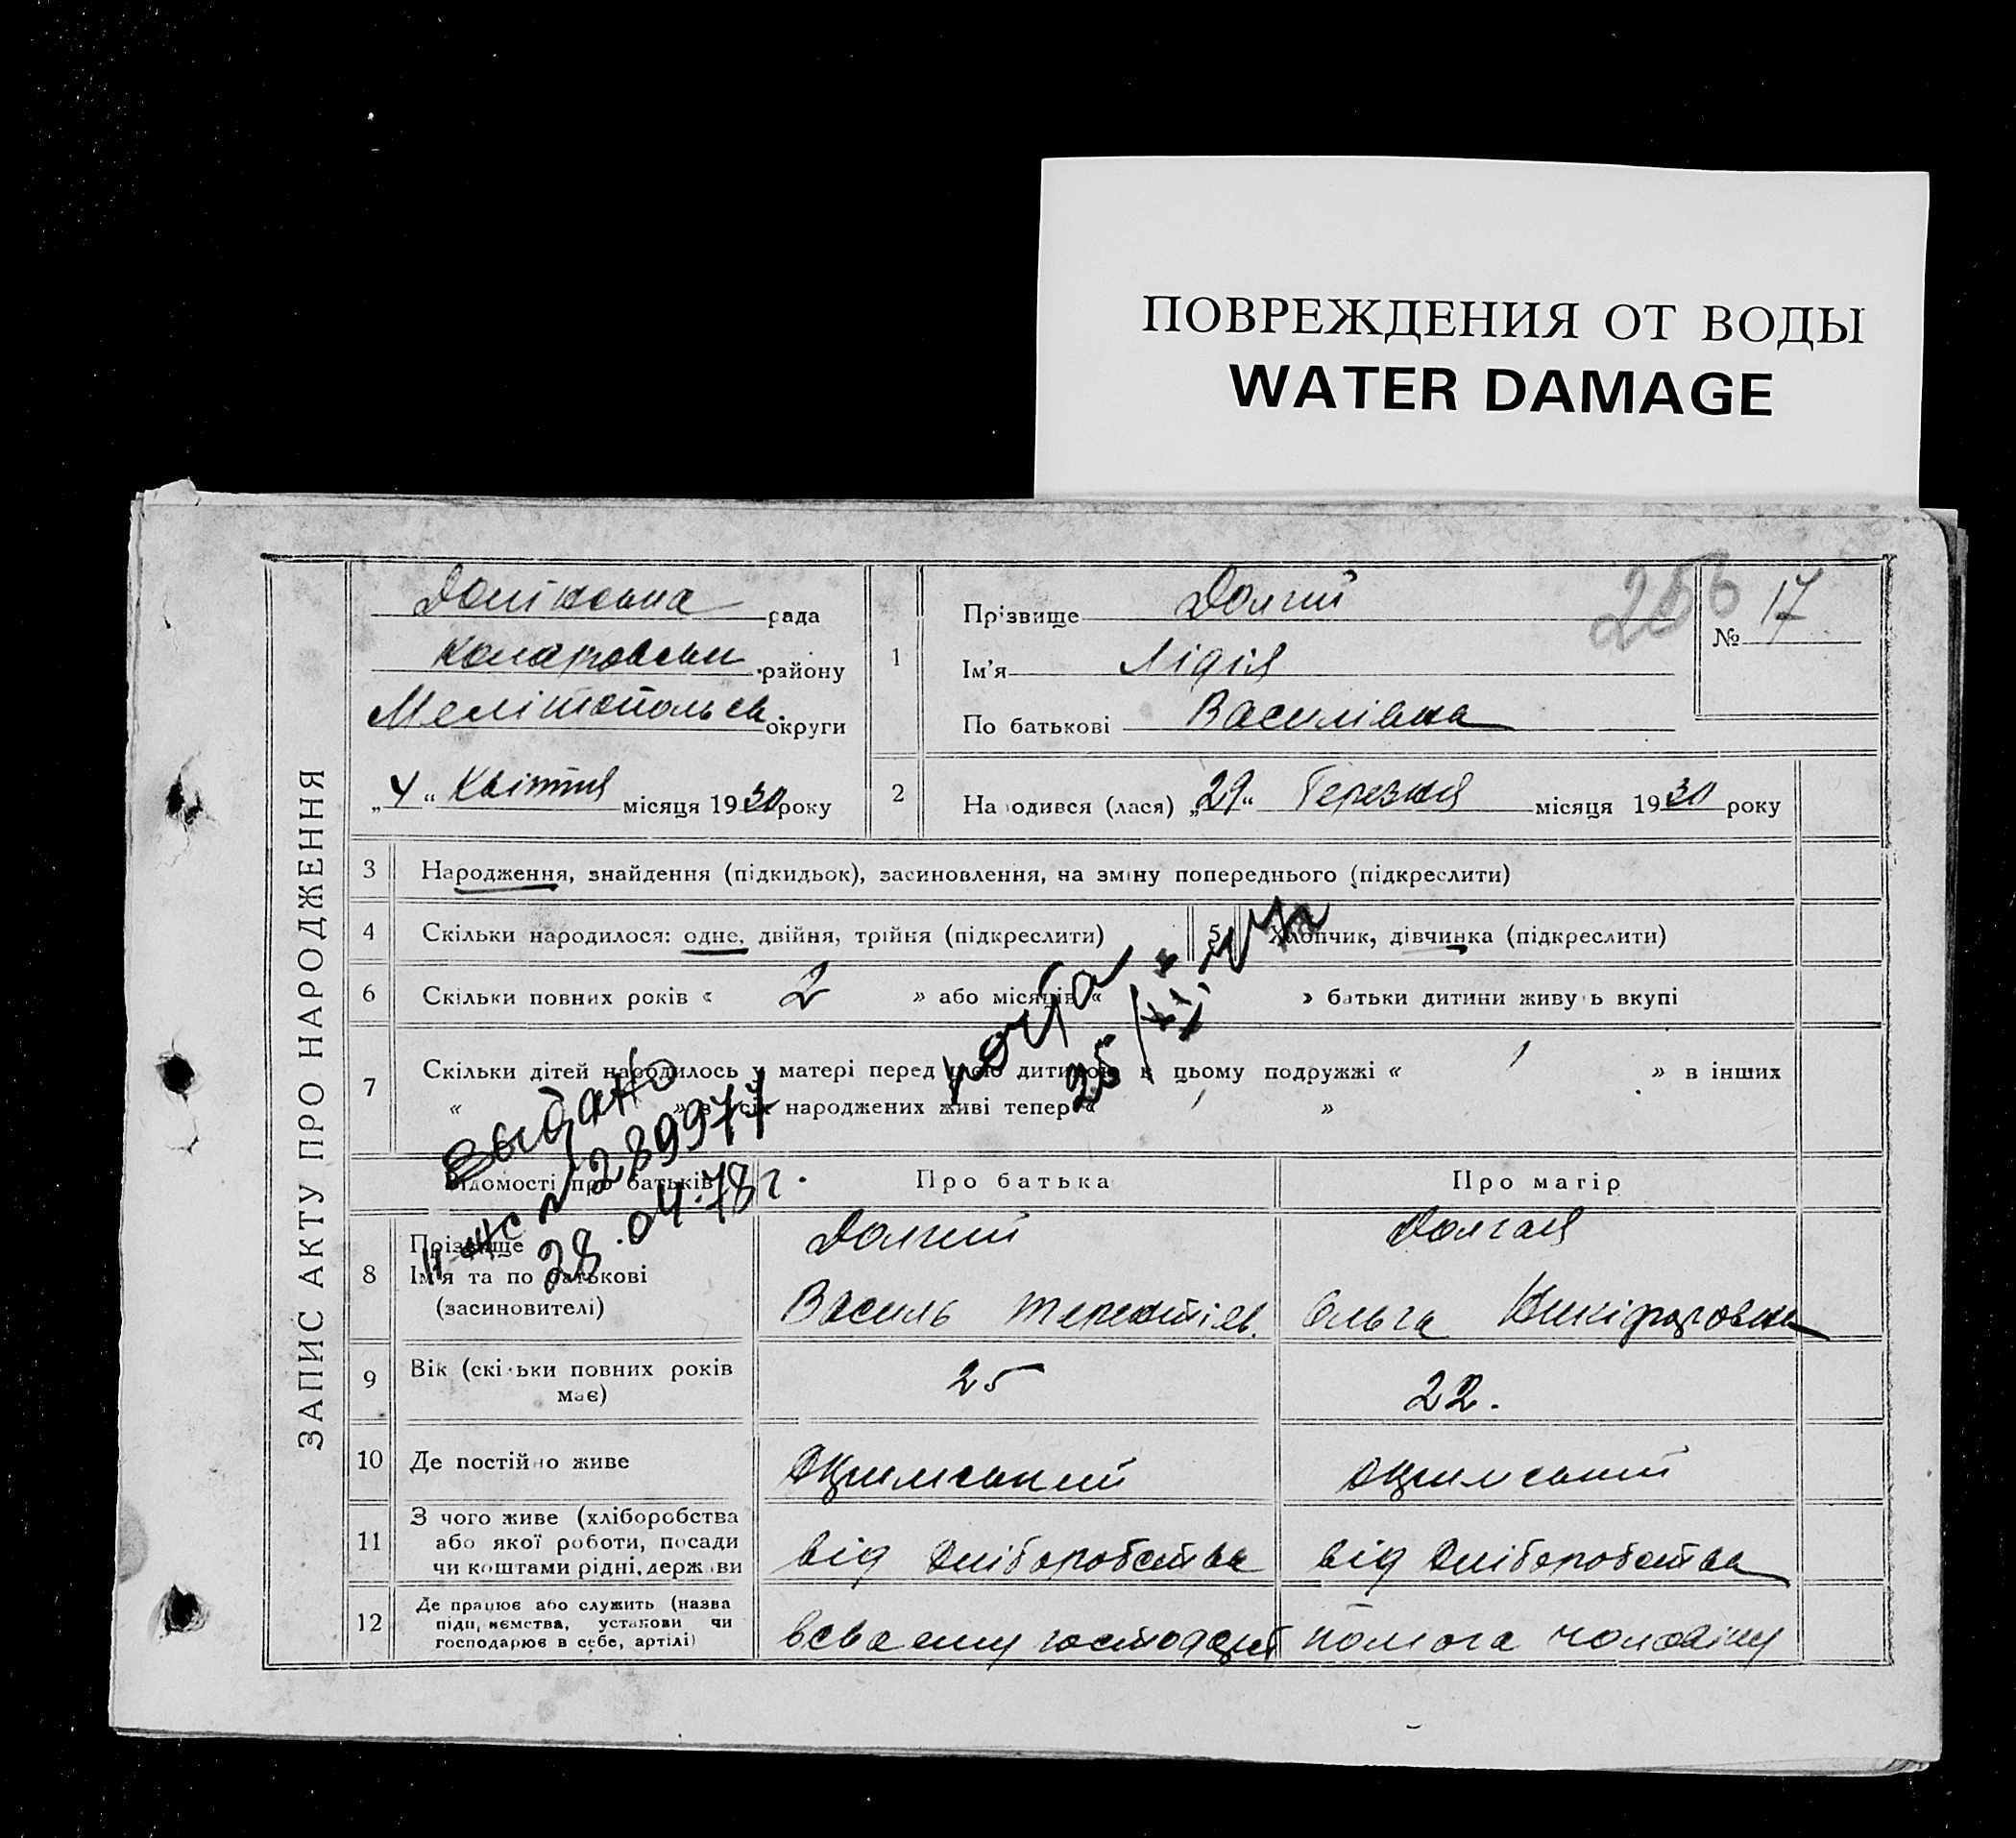 ПОВРЕЖДЕНИЯ ОТ ВОДЫ
WATER DAMAGE
ЗАПИС АКТУ ПРО НАРОДЖЕННЯ
рада
району
Мелітопольск. округи
„4“ Квітня місяця 1930 року
1
Прізвище Долгий
Ім'я Лідія
По батькові Василівна
256
№ 17
2 Народився (лася) „29“ Березня місяця 1930 року
3 Народження, знайдення (підкидьок), засиновлення, на зміну попереднього (підкреслити)
4 Скільки народилося: одне, двійня, трійня (підкреслити)
5 Хлопчик, дівчинка (підкреслити)
6 Скільки повних років « 2 » або місяців « » батьки дитини живуть вкупі
7 Скільки дітей народилось у матері перед цією дитиною в цьому подружжі « 1 » в інших
« » з усіх народжених живі тепер « 1 »
Выдано
№ 289977
28.04.78 г.
Відомості про батьків
Про батька
Про матір
8
Прізвище
Ім'я та по батькові
(засиновителі)
Долгий
Василь Терентієв.
Долгая
Ольга Никіфоровна
9 Вік (скільки повних років має)
25
22.
10 Де постійно живе
11 З чого живе (хліборобства
або якої роботи, посади
чи коштами рідні, держави
від Хліборобства
від Хліборобства
12 Де працює або служить (назва
підприємства, установи чи
господарює в себе, артілі)
всваему господарст
помога чоловіку